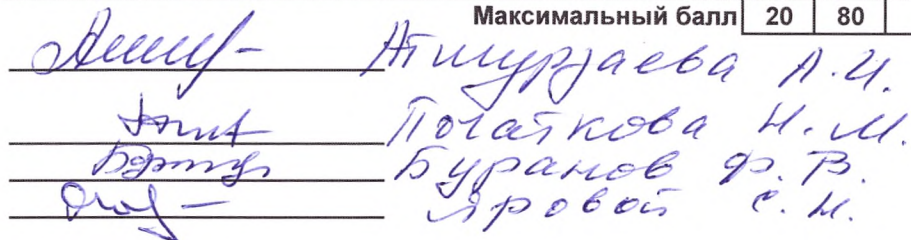 Максимальный балл 20 80
Атмурзаева А.И.
Початкова Н.М.
Буранов Ф.В.
Яровой С.Н.